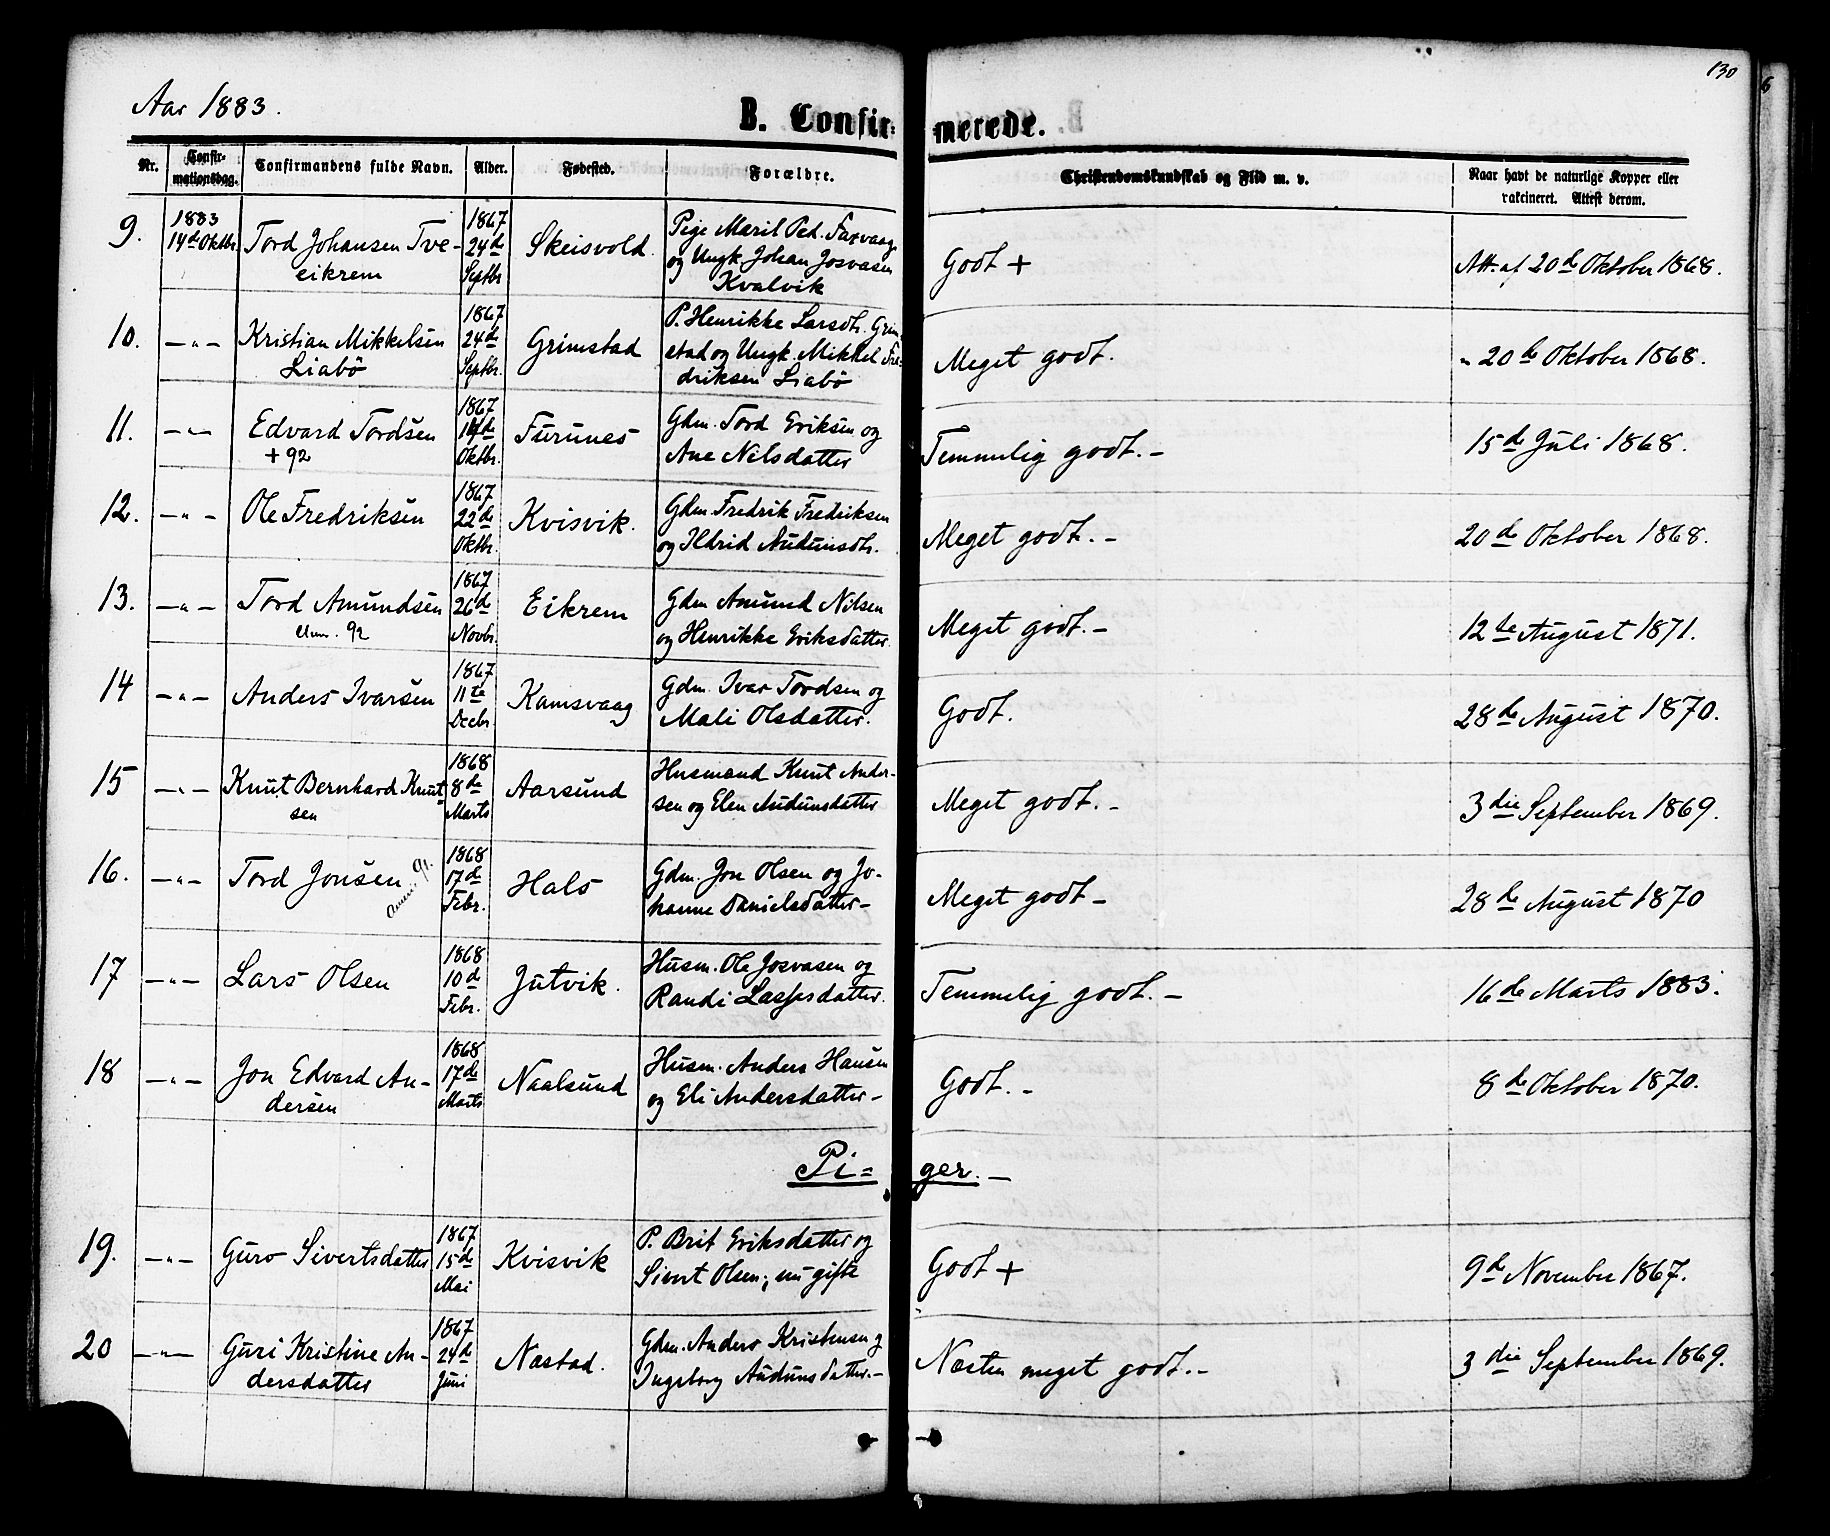 130
Aar 1883.
B. Confir-
merede.
Nr. Confir-mationsdag. Confirmandens fulde Navn. Alder. Fødested. Forældre. Christendomskundskab og Flid m. v. Naar havt de naturlige Kopper eller vakcineret. Attest derom.
9. 1883 14de Oktbr. Tord Johansen Tve-eikrem 1867 24de Septbr Skeisvold. Pige Marit Ped. Farvaag og Ungk. Johan Josvasen Kvalvik Godt + Att. af 20de Oktober 1868.
10. —„— Kristian Mikkelsen Liabö 1867 24de Septbr. Grimstad P. Henrikke Larsdtr. Grim-stad og Ungk. Mikkel Fre-driksen Liabö Meget godt. „ 20de Oktober 1868.
11. —„— Edvard Tordsen + 92 1867 Oktbr. Furunes Gdm. Tord Eriksen og Ane Nilsdatter Temmelig godt. — 15de Juli 1868.
12. —„— Ole Fredriksen 1867 22de Oktbr. Kvisvik. Gdm. Fredrik Fredriksen og Ildrid Audunsdtr. Meget godt. — 20de Oktober 1868.
13. —„— Tord Amundsen 92 1867 26de Novbr. Eikrem Gdm Amund Nilsen og Henrikke Eriksdatter Meget godt. — 12te August 1871.
14 —„— Anders Ivarsen 1867 11te Decbr. Ramsvaag Gdm. Ivar Tordsen og Mali Olsdatter. Godt. 28de August 1870.
15 —„— Knut Bernhard Knut-sen 1868 8de Marts Aarsund Husmand Knut Ander-sen og Elen Audunsdatter Meget godt. — 3die September 1869.
16. —„— Tord Jonsen 1868 17de Febr. Hals Gdm. Jon Olsen og Jo-hanne Danielsdatter — Meget godt — 28de August 1870
17 —„— Lars Olsen 1868 10d Febr. Jutvik. Husm. Ole Josvasen og Randi Lassesdatter. Temmelig godt. — 16de Marts 1883.
18 —„— Jon Edvard An-dersen 1868 17de Marts Naalsund Husm. Anders Hansen og Eli Andersdatter — Godt. — 8de Oktober 1870.
Pi-
ger. —
19. —„— Guro Sivertsdatter 1867 15de Mai Kvisvik P. Brit Eriksdatter og Sivert Olsen; nu gifte Godt + 9de November 1867.
20 —„— Guri Kristine An-dersdatter 1867 24de Juni Nastad. Gdm. Anders Kristensen og Ingeborg Audunsdatter. — Næsten meget godt. — 3die September 1869.